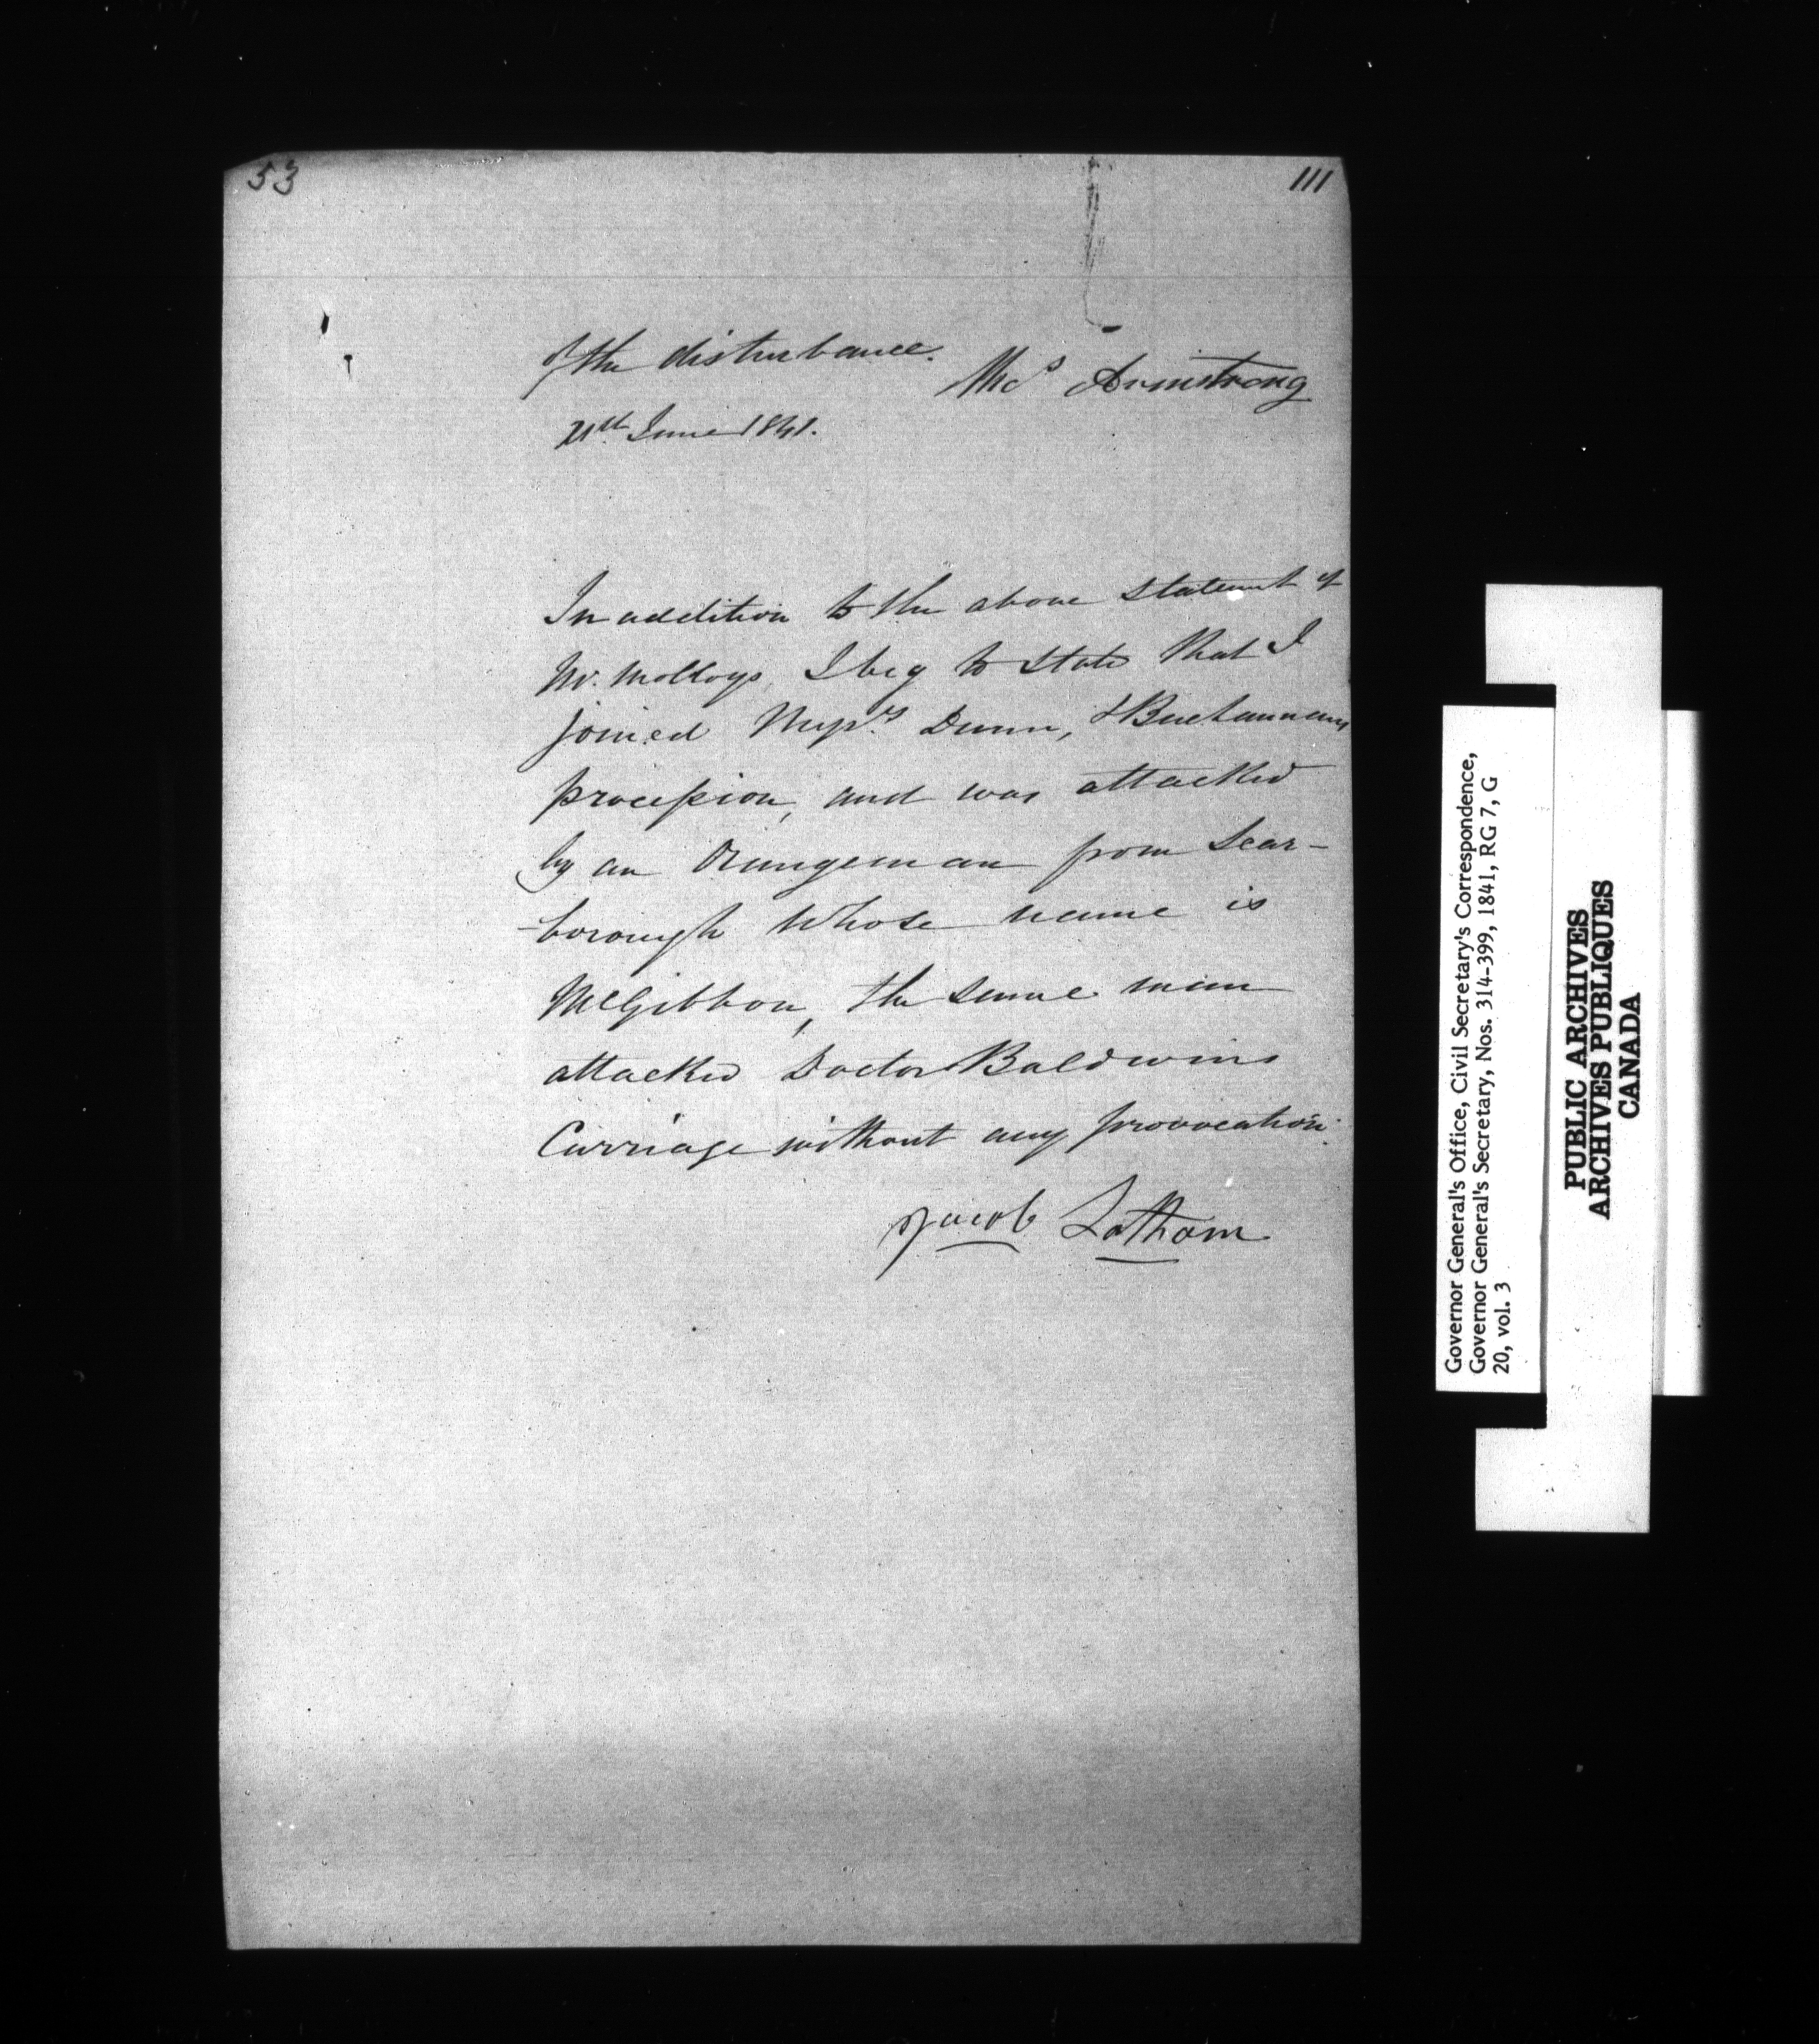 53
111
of the disturbance.
Thos Armstrong
21st June 1841.
In addition to the above statement of
Mr. Molloys, I beg to state that I
joined Messrs. Dunn, & Buchannans
procession, and was attacked
by an Orangeman from Scar-
-borough whose name is
McGibbon, the same man
attacked Doctor Baldwins
Carriage without any provocation.
Jacob Latham
Governor General's Office, Civil Secretary's Correspondence,
Governor General's Secretary, Nos. 314-399, 1841, RG 7, G
20, vol. 3
PUBLIC ARCHIVES
ARCHIVES PUBLIQUES
CANADA